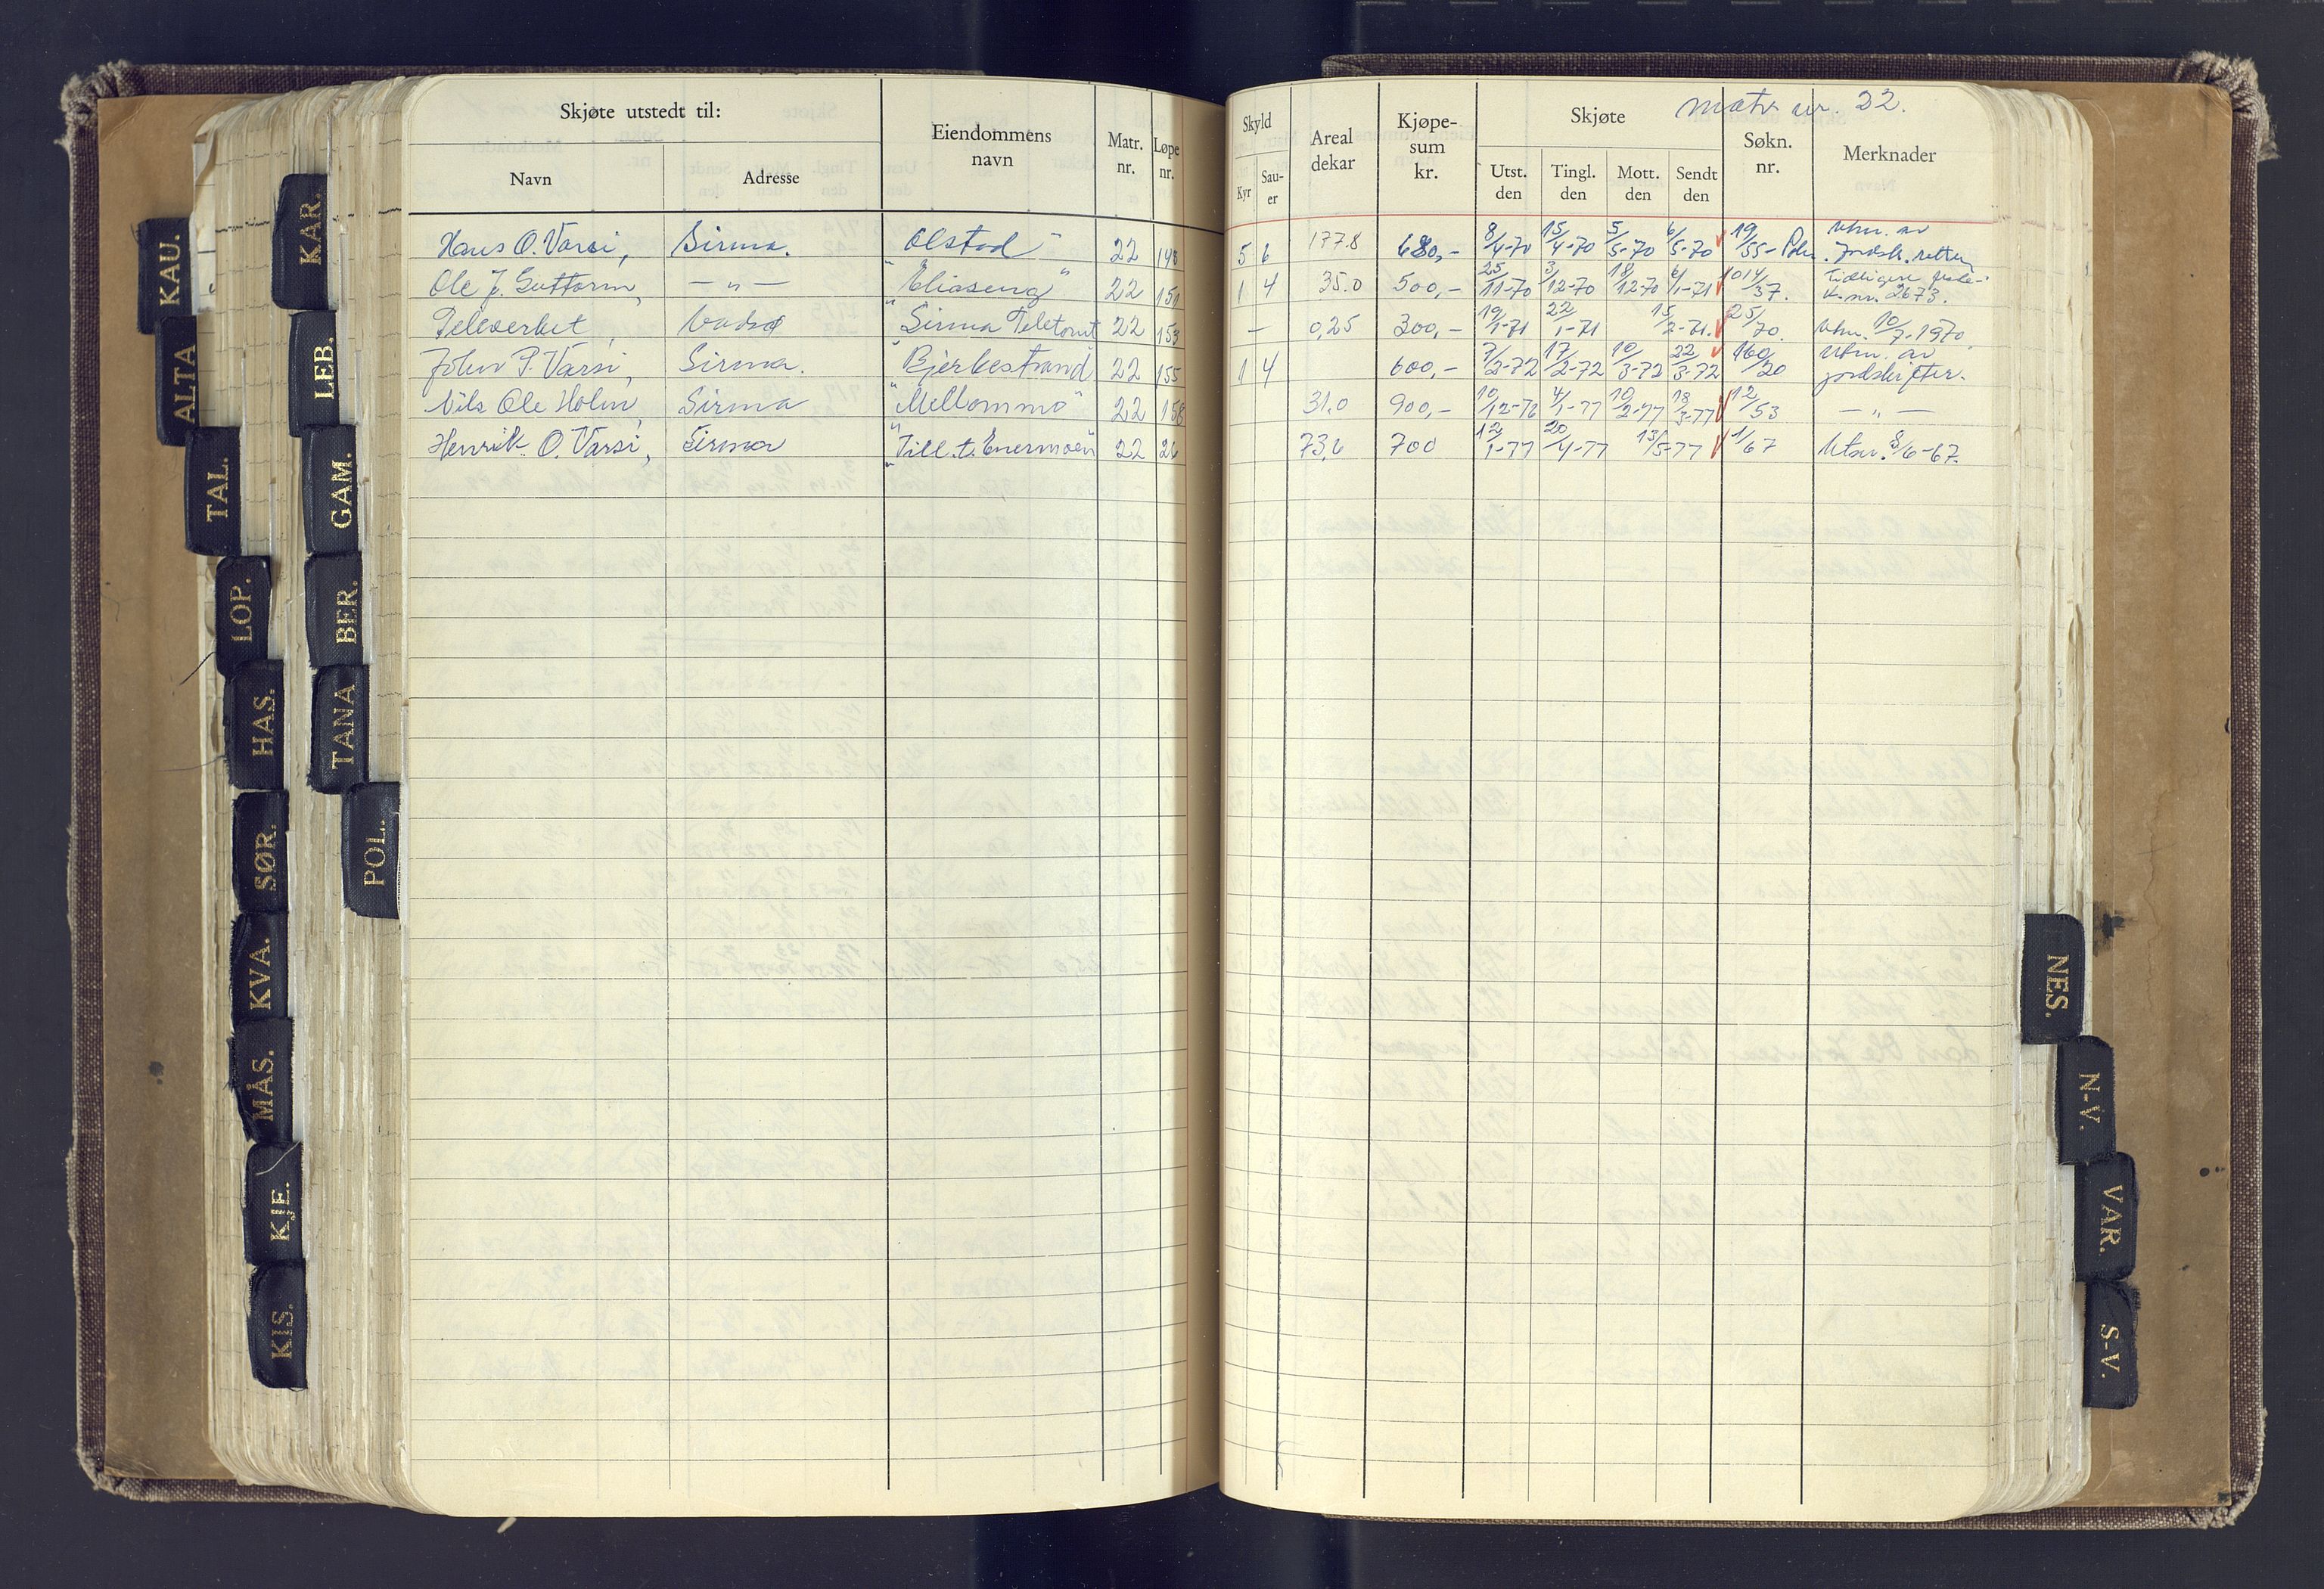 KAU.
ALTA
TAL.
LOP.
HAS.
SØR.
KVA.
MÅS.
KJE.
KIS.
KAR.
LEB.
GAM.
BER.
TANA
POL.
Skjøte utstedt til:
Navn
Adresse
Eiendommens navn
Matr. nr.
Løpe nr.
matr nr. 22.
Skyld
Kyr
Sau-er
Areal dekar
Kjøpe-sum kr.
Skjøte
Utst. den
Tingl. den
Mott. den
Sendt den
Søkn. nr.
Merknader
Hans O. Varsi, Sirma. "Olstad" 22 148 5 6 177.8 680,- 8/4-70 15/4-70 5/5-70 6/5-70 19/55- Utm. av jordsk.retten
Ole J. Guttorm, —"— "Eliaseng" 22 151 1 4 35.0 500,- 25/11-70 3/12-70 18/12-70 6/1-71 1014/37. Tidligere K.nr. 2673.
Televerket Vadsø "Sirma Teletomt 22 153 — 0,25 300,- 19/1-71 22/1-71 15/2-71. 25/70. Utm. 10/7-1970.
John P. Varsi, Sirma. "Bjerkestrand" 22 155 1 4 600,- 7/2-72 17/2-72 10/3-72 22/3-72 160/20 Utm. av jordskifter.
Nils Ole Holm, Sirma "Mellommo" 22 158 31,0 900,- 10/12-76 4/1-77 10/2-77 18/3-77 12/53 —"—
Henrik O. Varsi, Sirma "Till. t. Enermoen" 22 26 73,6 700 12/1-77 20/4-77 13/5-77 1/67 Utm. 8/6-67.
NES.
N-V.
VAR.
S-V.